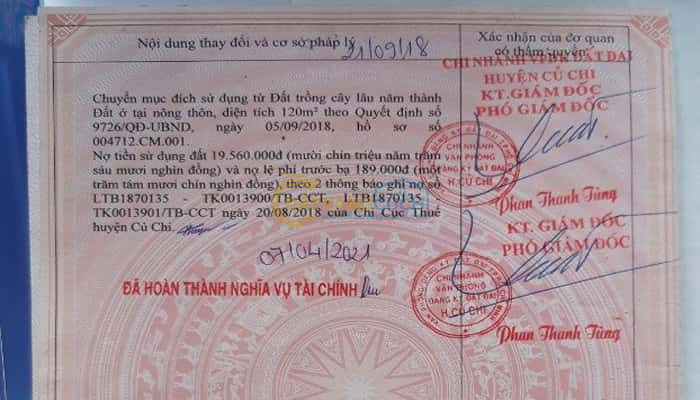 Nội dung thay đổi và cơ sở pháp lý
Xác nhận của cơ quan
có thẩm quyền
21/09/18
CHI NHÁNH VPĐK ĐẤT ĐAI
HUYỆN CỦ CHI
KT.GIÁM ĐỐC
PHÓ GIÁM ĐỐC
Chuyển mục đích sử dụng từ Đất trồng cây lâu năm thành
Đất ở tại nông thôn, diện tích 120m² theo Quyết định số
9726/QĐ-UBND, ngày 05/09/2018, hồ sơ số
004712.CM.001.
Nợ tiền sử dụng đất 19.560.000đ (mười chín triệu năm trăm
sáu mươi nghìn đồng) và nợ lệ phí trước bạ 189.000đ (một
trăm tám mươi chín nghìn đồng), theo 2 thông báo ghi nợ số
LTB1870135 - TK0013900/TB-CCT, LTB1870135 -
TK0013901/TB-CCT ngày 20/08/2018 của Chi Cục Thuế
huyện Củ Chi.
CHI NHÁNH
VĂN PHÒNG
ĐĂNG KÝ ĐẤT ĐAI
H.CỦ CHI
Phan Thanh Tùng
KT. GIÁM ĐỐC
PHÓ GIÁM ĐỐC
07/04/2021
ĐÃ HOÀN THÀNH NGHĨA VỤ TÀI CHÍNH
CHI NHÁNH
VĂN PHÒNG
ĐĂNG KÝ ĐẤT ĐAI
H.CỦ CHI
Phan Thanh Tùng